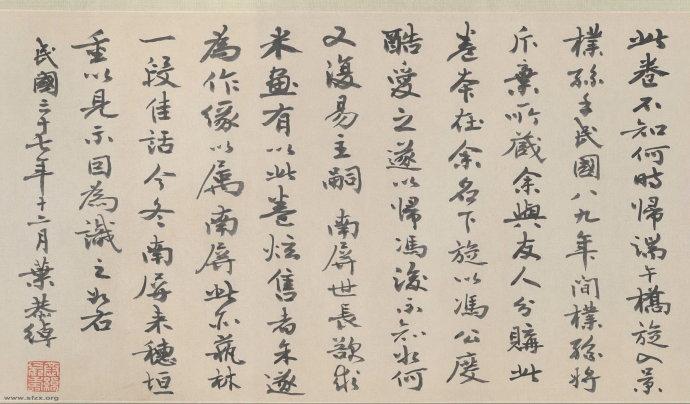 此卷不知何時歸端午橋旋入景
樸孫手民國八九年間樸孫將
斥棄所藏余與友人分購此
卷本在余名下旋以馮公度
酷愛之遂以歸馮後不知如何
又復易主嗣 南屏世長欲求
米畫有以此卷炫售者余遂
為作緣以屬南屏此亦藝林
一段佳話今冬南屏來穗垣
重以見示因為識之如右
民國三十七年十二月葉恭綽
www.sfzx.org